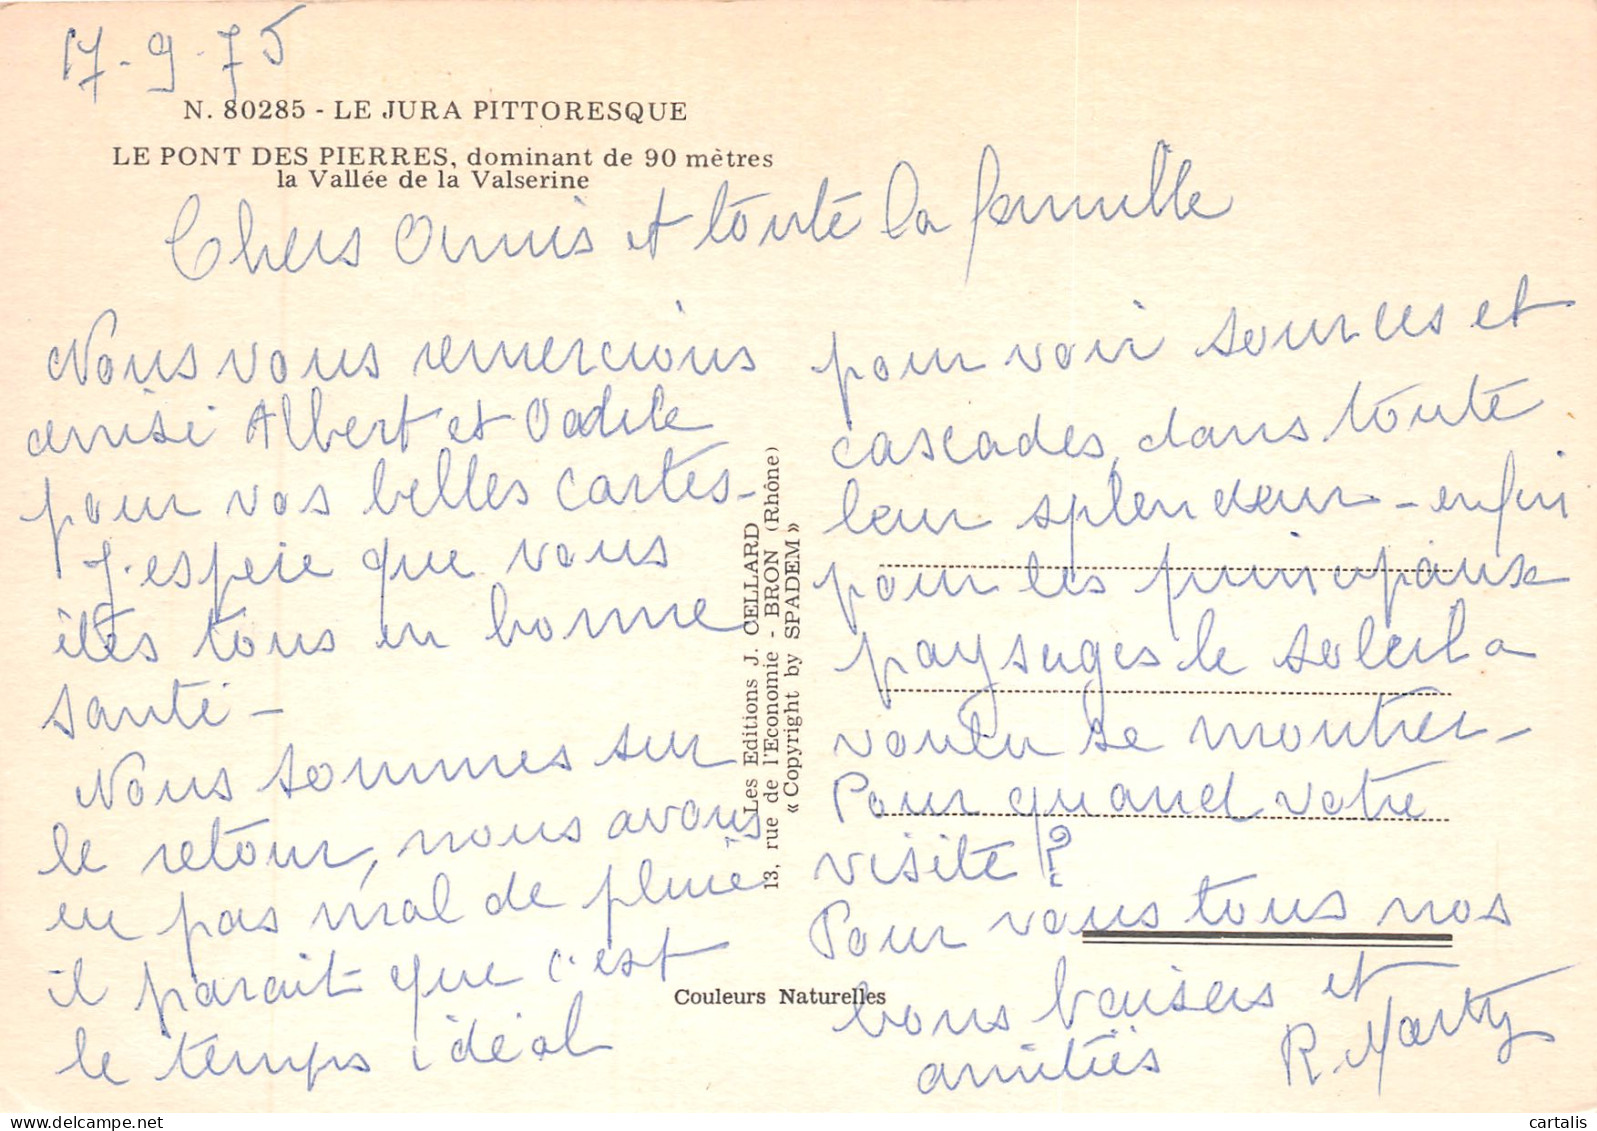 17-9-75
N. 80285 - LE JURA PITTORESQUE
LE PONT DES PIERRES, dominant de 90 mètres
la Vallée de la Valserine
Chers Amis et toute la famille
Nous vous remercions
ainsi Albert et Odile
pour vos belles cartes -
J'espère que vous
êtes tous en bonne
santé -
Nous sommes sur
le retour, nous avons
eu pas mal de pluie
il parait que c'est
le temps idéal
pour voir sources et
cascades, dans toute
leur splendeur - enfin
pour les principaux
paysages le soleil a
voulu se montrer -
Pour quand votre
visite ?
Pour vous tous nos
bons baisers et
amitiés R. Marty
Les Editions J. CELLARD
13, rue de l'Economie - BRON (Rhône)
« Copyright by SPADEM »
Couleurs Naturelles
cartalis